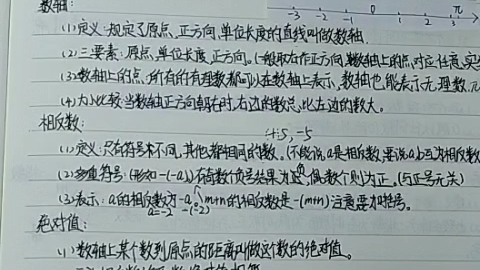 数轴:
-3 -2 -1 0 1 2 3 π
(1)定义:规定了原点、正方向、单位长度的直线叫做数轴
(2)三要素:原点、单位长度、正方向。(一般取右作正方向,数轴上的点对应任意实
(3)数轴上的点:所有的有理数都可以在数轴上表示,数轴也能表示无理数,
(4)大小比较:当数轴正方向朝右时,右边的数总比左边的数大。
+5, -5
相反数:
(1)定义:只有符号不同,其他都相同的数。(不能说a是相反数,要说a、b互为相反数
(2)多重符号:(形如-(-a))有奇数个负号结果为负,偶数个则为正。(与正号无关)
(3)表示:a的相反数为-a。m+n的相反数是-(m+n)注意要加括号。
a=-2 -(-2)
绝对值:
(1)数轴上某个数到原点的距离叫做这个数的绝对值。